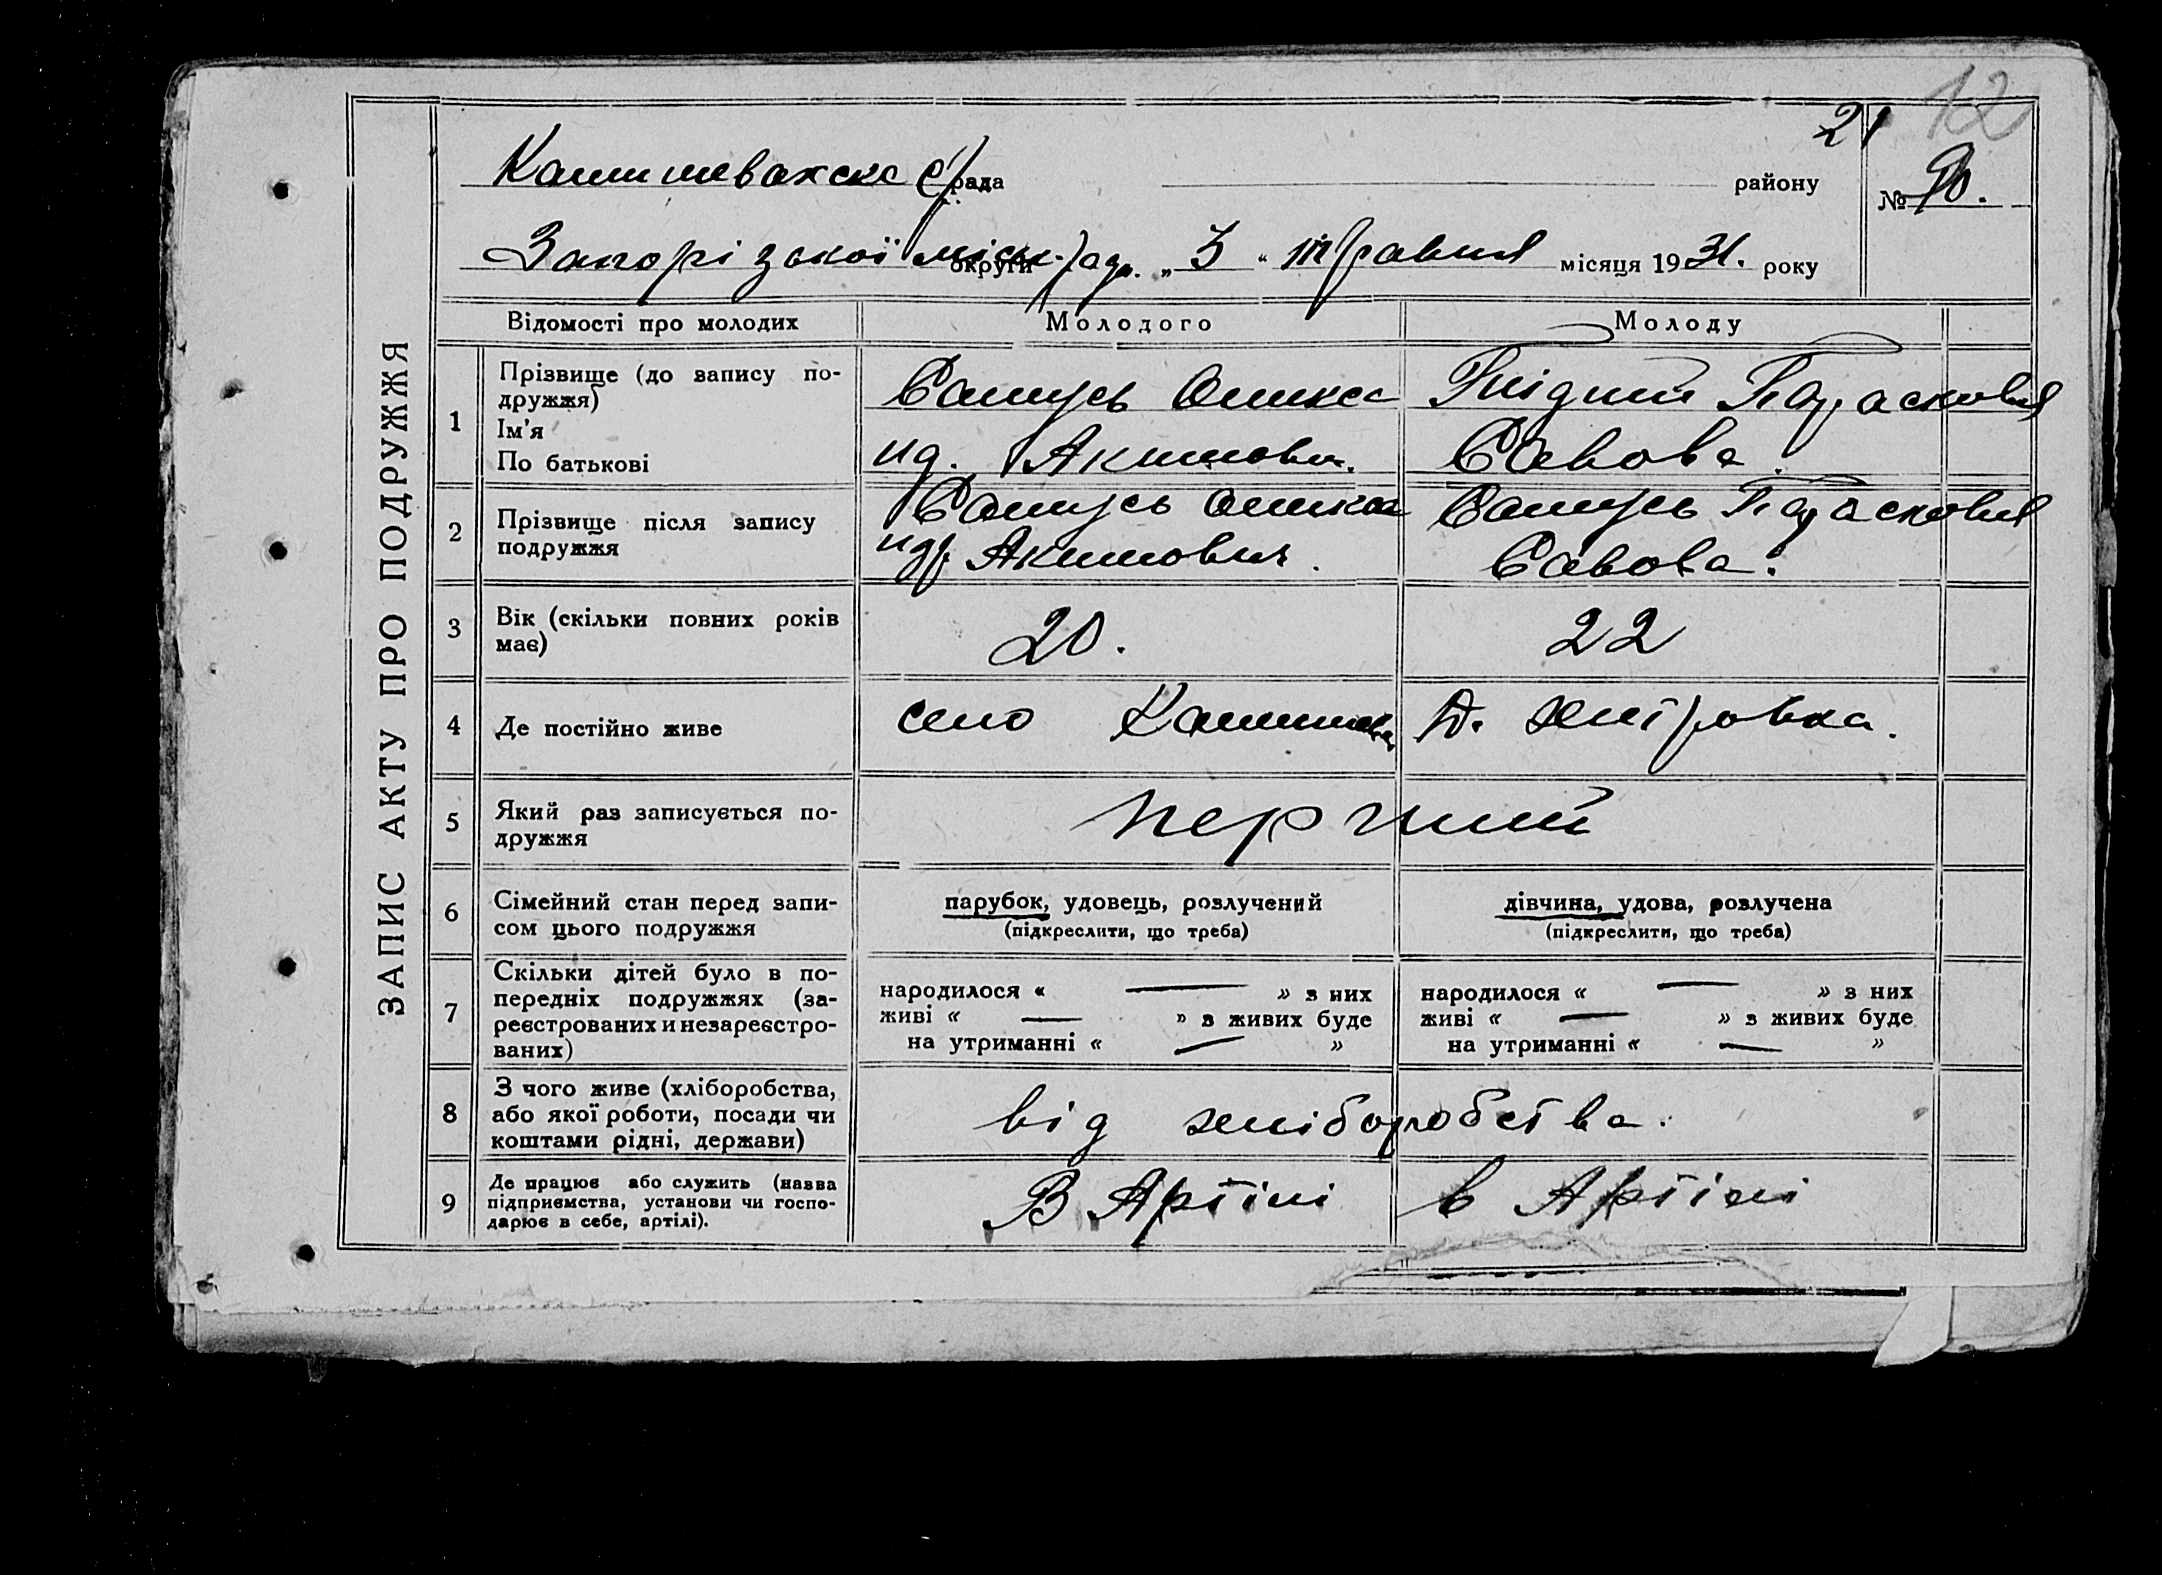 12
21
Камишеваxска С/рада району № 10.
Запорізької міськ.рад. округи „ 3 “ травня місяця 1931. року
ЗАПИС АКТУ ПРО ПОДРУЖЖЯ
Відомості про молодих Молодого Молоду
1 Прізвище (до запису по-
дружжя)
Ім'я
По батькові
Самусь Олекса
ндр. Акимови.
Гнідий Парасковія
Савова.
2 Прізвище після запису
подружжя
Самусь Олекса
ндр Акимович.
Самусь Парасковія
Савова.
3 Вік (скільки повних років
має)
20.
22
4 Де постійно живе
село
Хитровка.
5 Який раз записується по-
дружжя
перший
6 Сімейний стан перед запи-
сом цього подружжя
парубок, удовець, розлучений
(підкреслити, що треба)
дівчина, удова, розлучена
(підкреслити, що треба)
7 Скільки дітей було в по-
передніх подружжях (за-
реєстрованих и незареєстро-
ваних)
народилося « — » з них
живі « — » з живих буде
на утриманні « — »
народилося « — » з них
живі « — » з живих буде
на утриманні « — »
8 З чого живе (хліборобства,
або якої роботи, посади чи
коштами рідні, держави)
від хліборобства.
9 Де працює або служить (назва
підприємства, установи чи госпо-
дарює в себе, артілі).
В Артілі
в Артілі